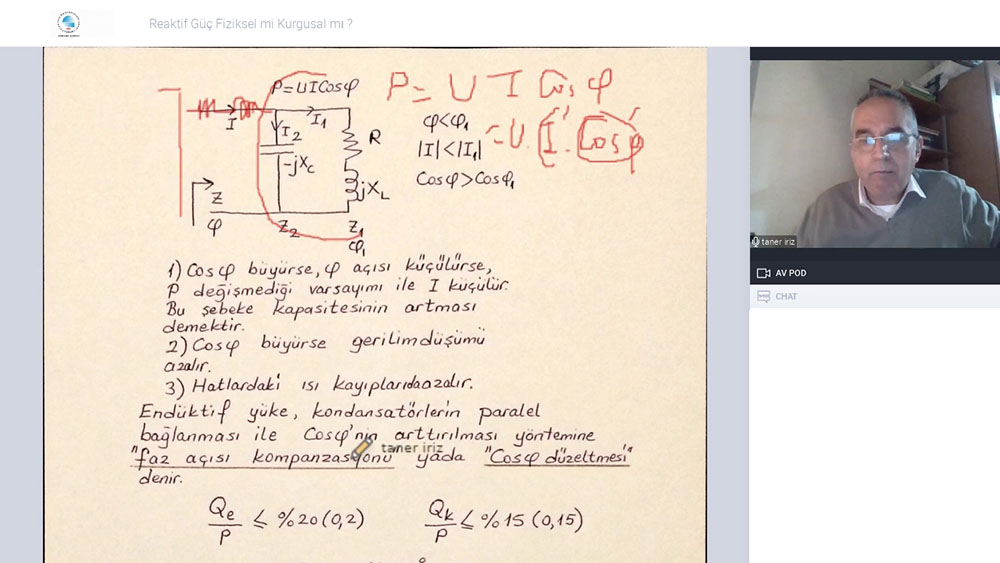 Reaktif Güç Fiziksel mi Kurgusal mı ?
P=UICosφ
P= U I Cosφ
=U.I'.Cosφ'
I
I1
I2
R
-jXc
jXL
Z
φ
Z2
Z1
φ1
φ<φ1
|I|<|I1|
Cosφ>Cosφ1
1) Cosφ büyürse, φ açısı küçülürse,
P değişmediği varsayımı ile I küçülür.
Bu şebeke kapasitesinin artması
demektir.
2) Cosφ büyürse gerilimdüşümü
azalır.
3) Hatlardaki ısı kayıplarıdaazalır.
Endüktif yüke, kondansatörlerin paralel
bağlanması ile Cosφ'nin arttırılması yöntemine
"faz açısı kompanzasyonu yada "Cosφ düzeltmesi"
denir.
taner iriz
Qe/P ≤ %20(0,2)
Qk/P ≤ %15(0,15)
taner iriz
AV POD
CHAT